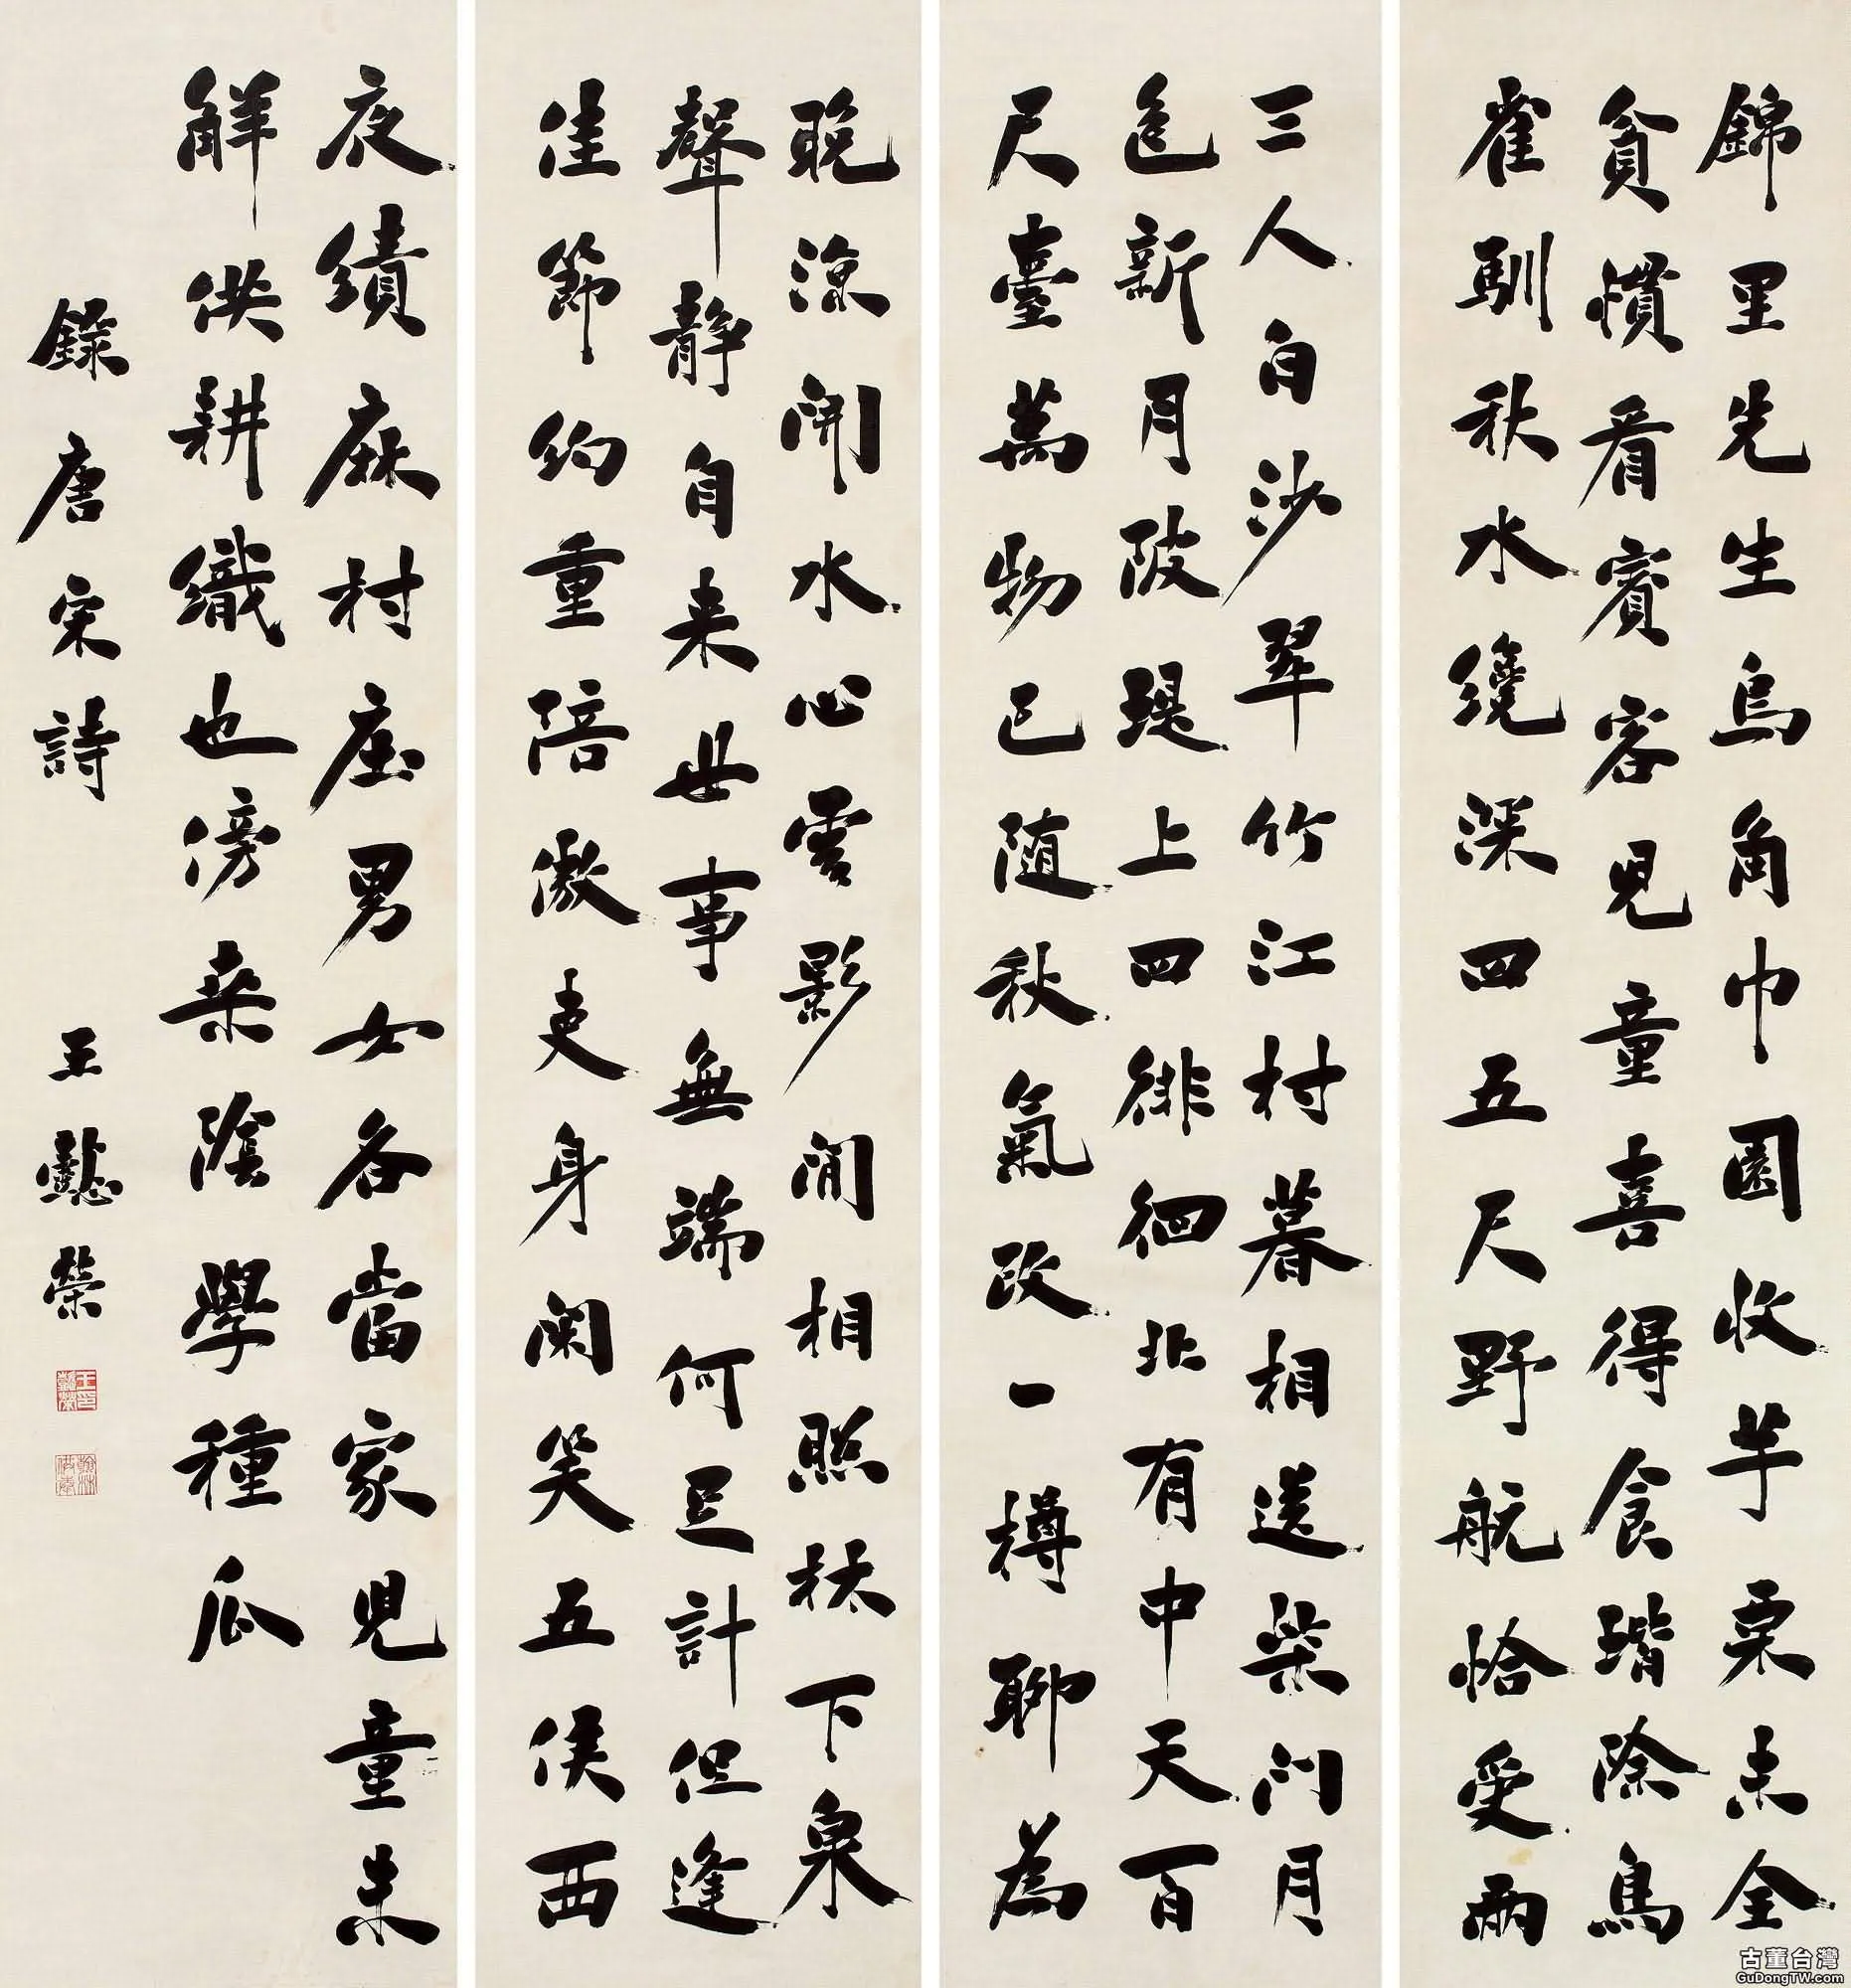 錦里先生烏角巾園收芋栗未全
貧慣看賓客兒童喜得食階除鳥
雀馴秋水纔深四五尺野航恰受兩
三人白沙翠竹江村暮相送柴門月
色新月陂堤上四徘徊北有中天百
尺臺萬物已隨秋氣改一樽聊為
晚涼開水心雲影閒相照林下泉
聲靜自来世事無端何足計但逢
佳節約重陪傲吏身閑笑五侯西
夜績麻村庄男女各當家兒童未
解供耕織也傍桑陰學種瓜
錄唐宋詩 王懿榮
王懿榮印
翰林供奉
古董台灣
GuDongTW.com